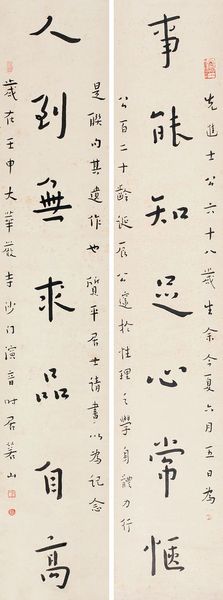 先進士公六十八歲生余今夏六月五日為
事能知足心常愜
公百二十齡誕辰公邃於性理之學身體力行
是聯句其遺作也質平居士請書以為記念
人到無求品自高
歲在壬申大華嚴寺沙門演音時居山